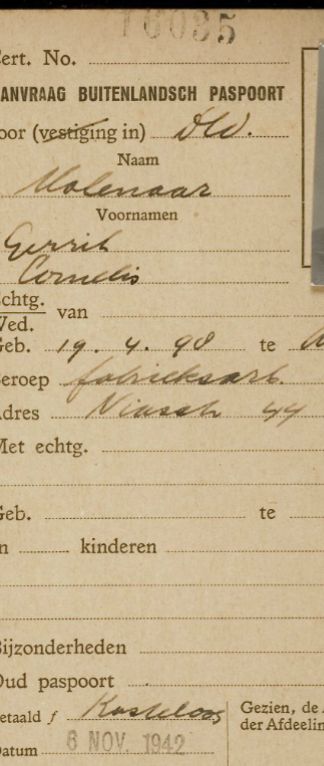 16035
ert. No.
ANVRAAG BUITENLANDSCH PASPOORT
oor (vestiging in) Dld.
Naam
Molenaar
Voornamen
Gerrit
Cornelis
chtg.
Ved. van
Geb. 19. 4. 98 te A
eroep fabrieksarb.
dres Niasstr 44
Met echtg.
Geb. te
n kinderen
Bijzonderheden
Oud paspoort
etaald f Kosteloos
Gezien, de A
der Afdeelin
atum 6 NOV. 1942